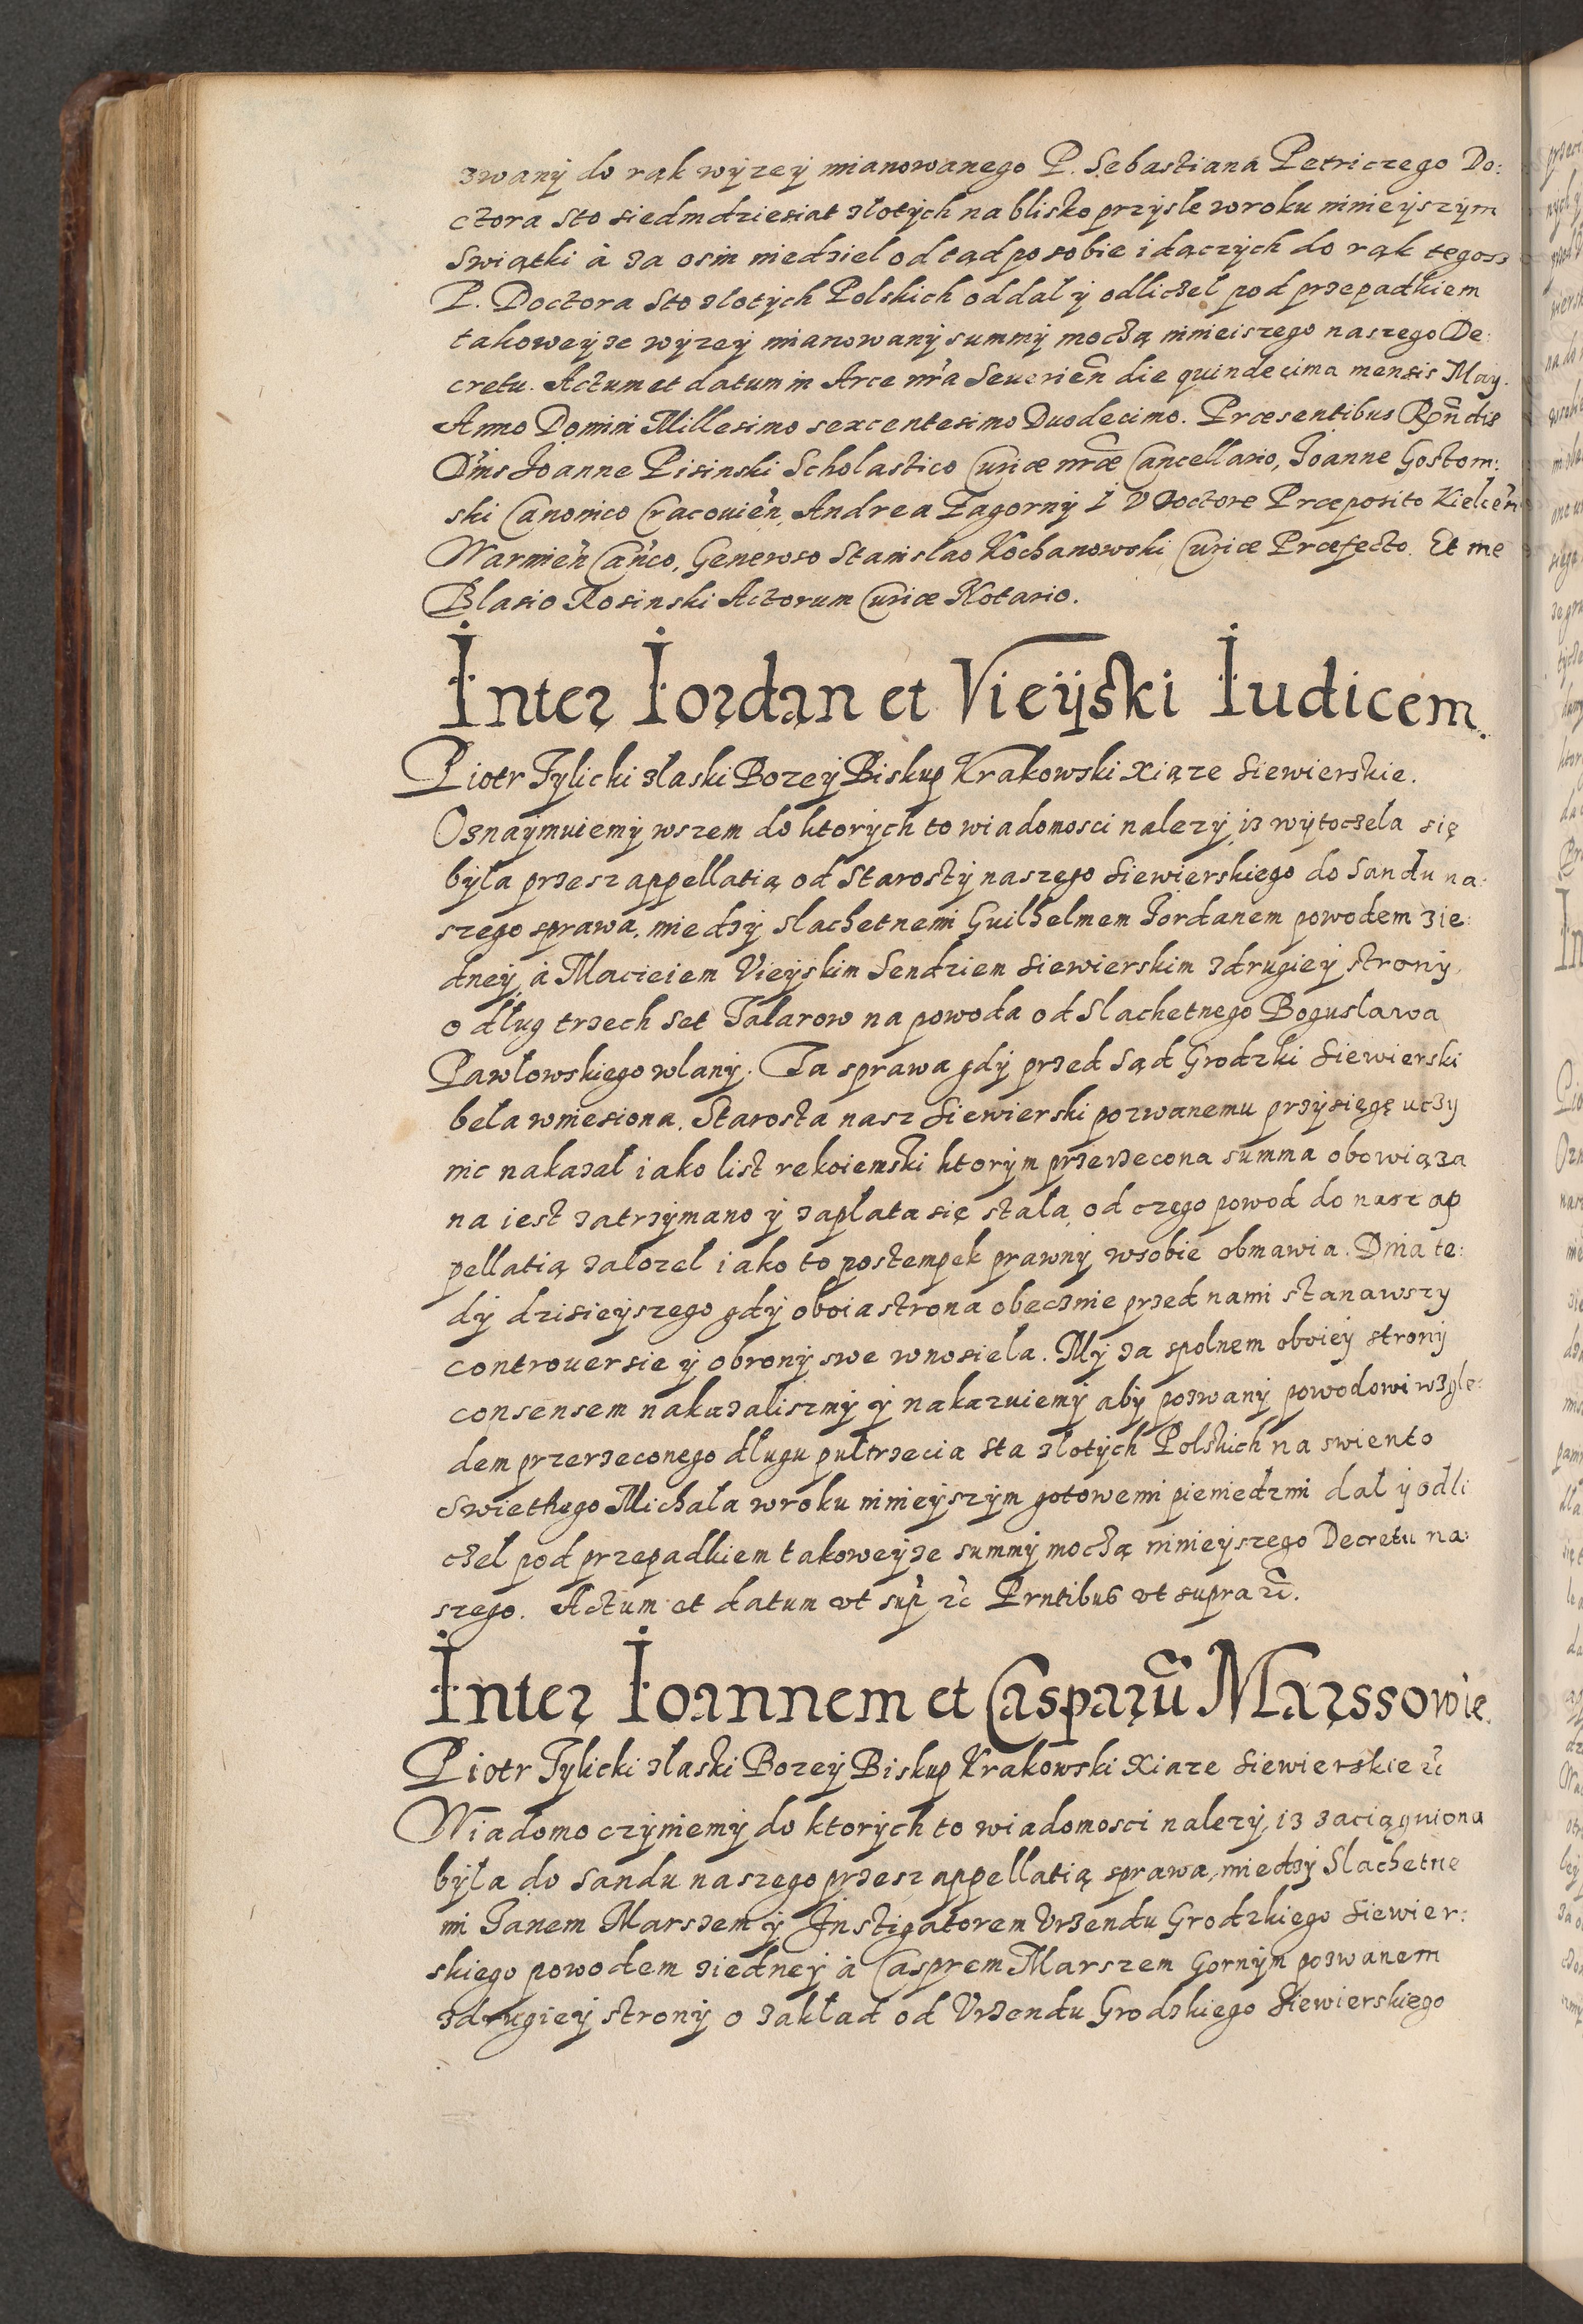 zwany do rąk wyzey mianowanego P. Sebastiana Petriczego Do:
ctora sto siedmdziesiat złotych na blisko przysłe wroku ninieyszym
Swiątki à za osm niedziel od tąd po sobie idączych do rąk tegosz
P. Doctora sto złotych Polskich oddal y odliczel pod przepadkiem
takoweyze wyzey mianowany summy moczą ninieiszego naszego De:
cretu. Actum et datum in Arce nr̃a Seuerien̄ die quindecima mensis May.
Anno Domini Millesimo sexcentesimo Duodecimo. Præsentibus Rn̄dis
Dn̄is Joanne Pisinski Scholastico Curiæ nr̃æ Cancellario, Joanne Gostom:
ski Canonico Cracouien̄, Andrea Zagorny I V Doctore Præposito Kielcen̄
Warmien̄ Can̄co, Generoso Stanislao Kochanowski Curiæ Præfecto. Et me
Blasio Rosinski Actorum Curiæ Notario.
Inter Iordan et Vieyski Iudicem.
Piotr Tylicki złaski Bozey Biskup Krakowski Xiąze Siewierskie.
Oznaymuiemy wszem do ktorych to wiadomosci nalezy, iz wytoczela się
była przesz appellatią od Starosty naszego Siewierskiego do Sandu na:
szego sprawa, miedzy slachetnemi Guilhelmem Jordanem powodem zie:
dney, à Macieiem Vieyskim Sendziem Siewierskim zdrugiey strony,
o dług trzech set Talarow na powoda od Slachetnego Bogusława
Pawłowskiego wlany. Ta sprawa gdy przed Sąd Grodzki Siewierski
beła wniesiona. Starosta nasz Siewierski pozwanemu przysięgę uczy
nic nakazał iako list rekoiemski ktorym przerzecona summa obowiąza
na iest zatrzymano y zapłata się stała, od czego powod do nasz ap
pellatią założel iako to postempek prawny wsobie obmawia. Dnia te:
dy dzisieyszego gdy oboia strona obecznie przed nami stanawszy
controuersie y obrony swe wnosiela. My za spolnem oboiey strony
consensem nakazalismy y nakazuiemy aby pozwany powodowi wzgle:
dem przerzeconego długu pułtrzecia sta złotych Polskich na swiento
Swiethego Michała wroku ninieyszym gotowemi pieniedzmi dał y odli
czel pod przepadkiem takoweyze summy moczą ninieyszego Decretu na:
szego. Actum et datum vt sup̄ ꝛc̄ Prntibus vt supra ꝛc̄.
Inter Ioannem et Casparū Marssowie.
Piotr Tylicki złaski Bozey Biskup Krakowski Xiaze Siewierskie ꝛc̄
Wiadomo czyniemy do ktorych to wiadomosci nalezy, iz zaciągniona
była do Sandu naszego przesz appellatią sprawa, miedzy Slachetne
mi Janem Marszem y Instigatorem Vrzendu Grodzkiego Siewier:
skiego powodem ziedney à Casprem Marszem Gornym pozwanem
zdrugiey strony o zakład od Vrzendu Grodzkiego Siewierskiego